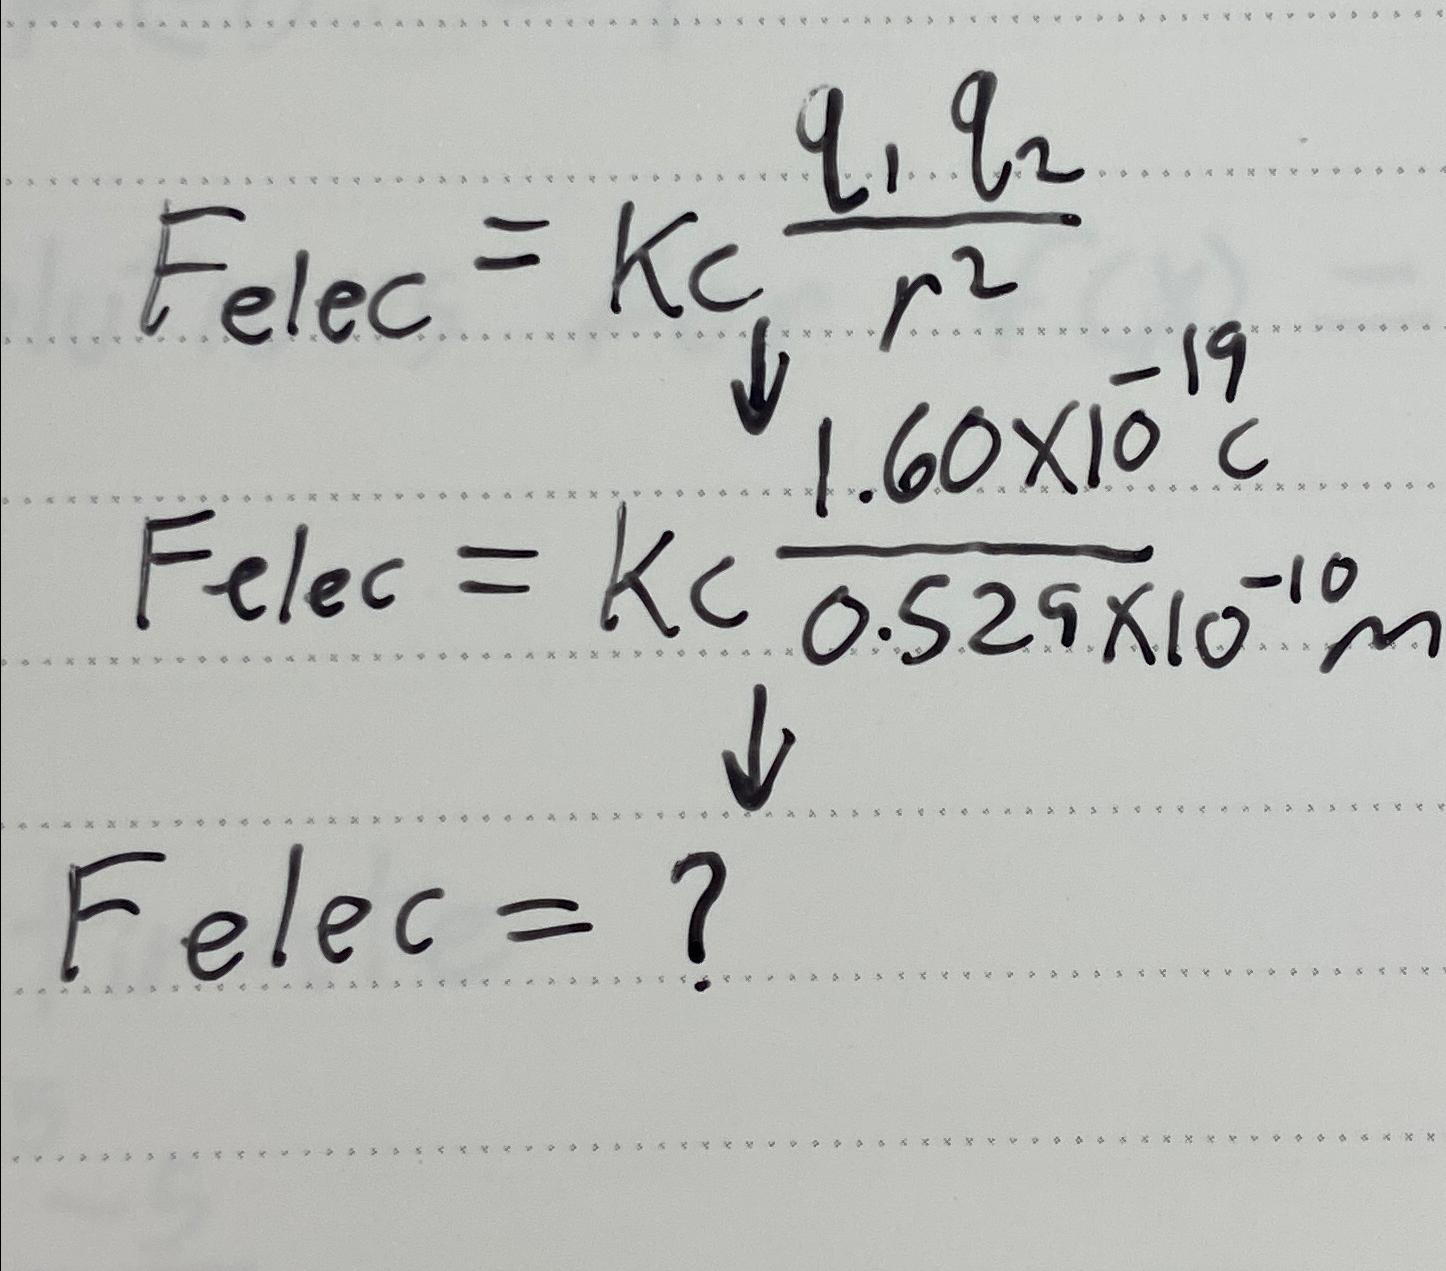 Felec = Kc q1 q2 / r²
↓
Felec = Kc 1.60×10⁻¹⁹ c / 0.529×10⁻¹⁰ m
↓
Felec = ?